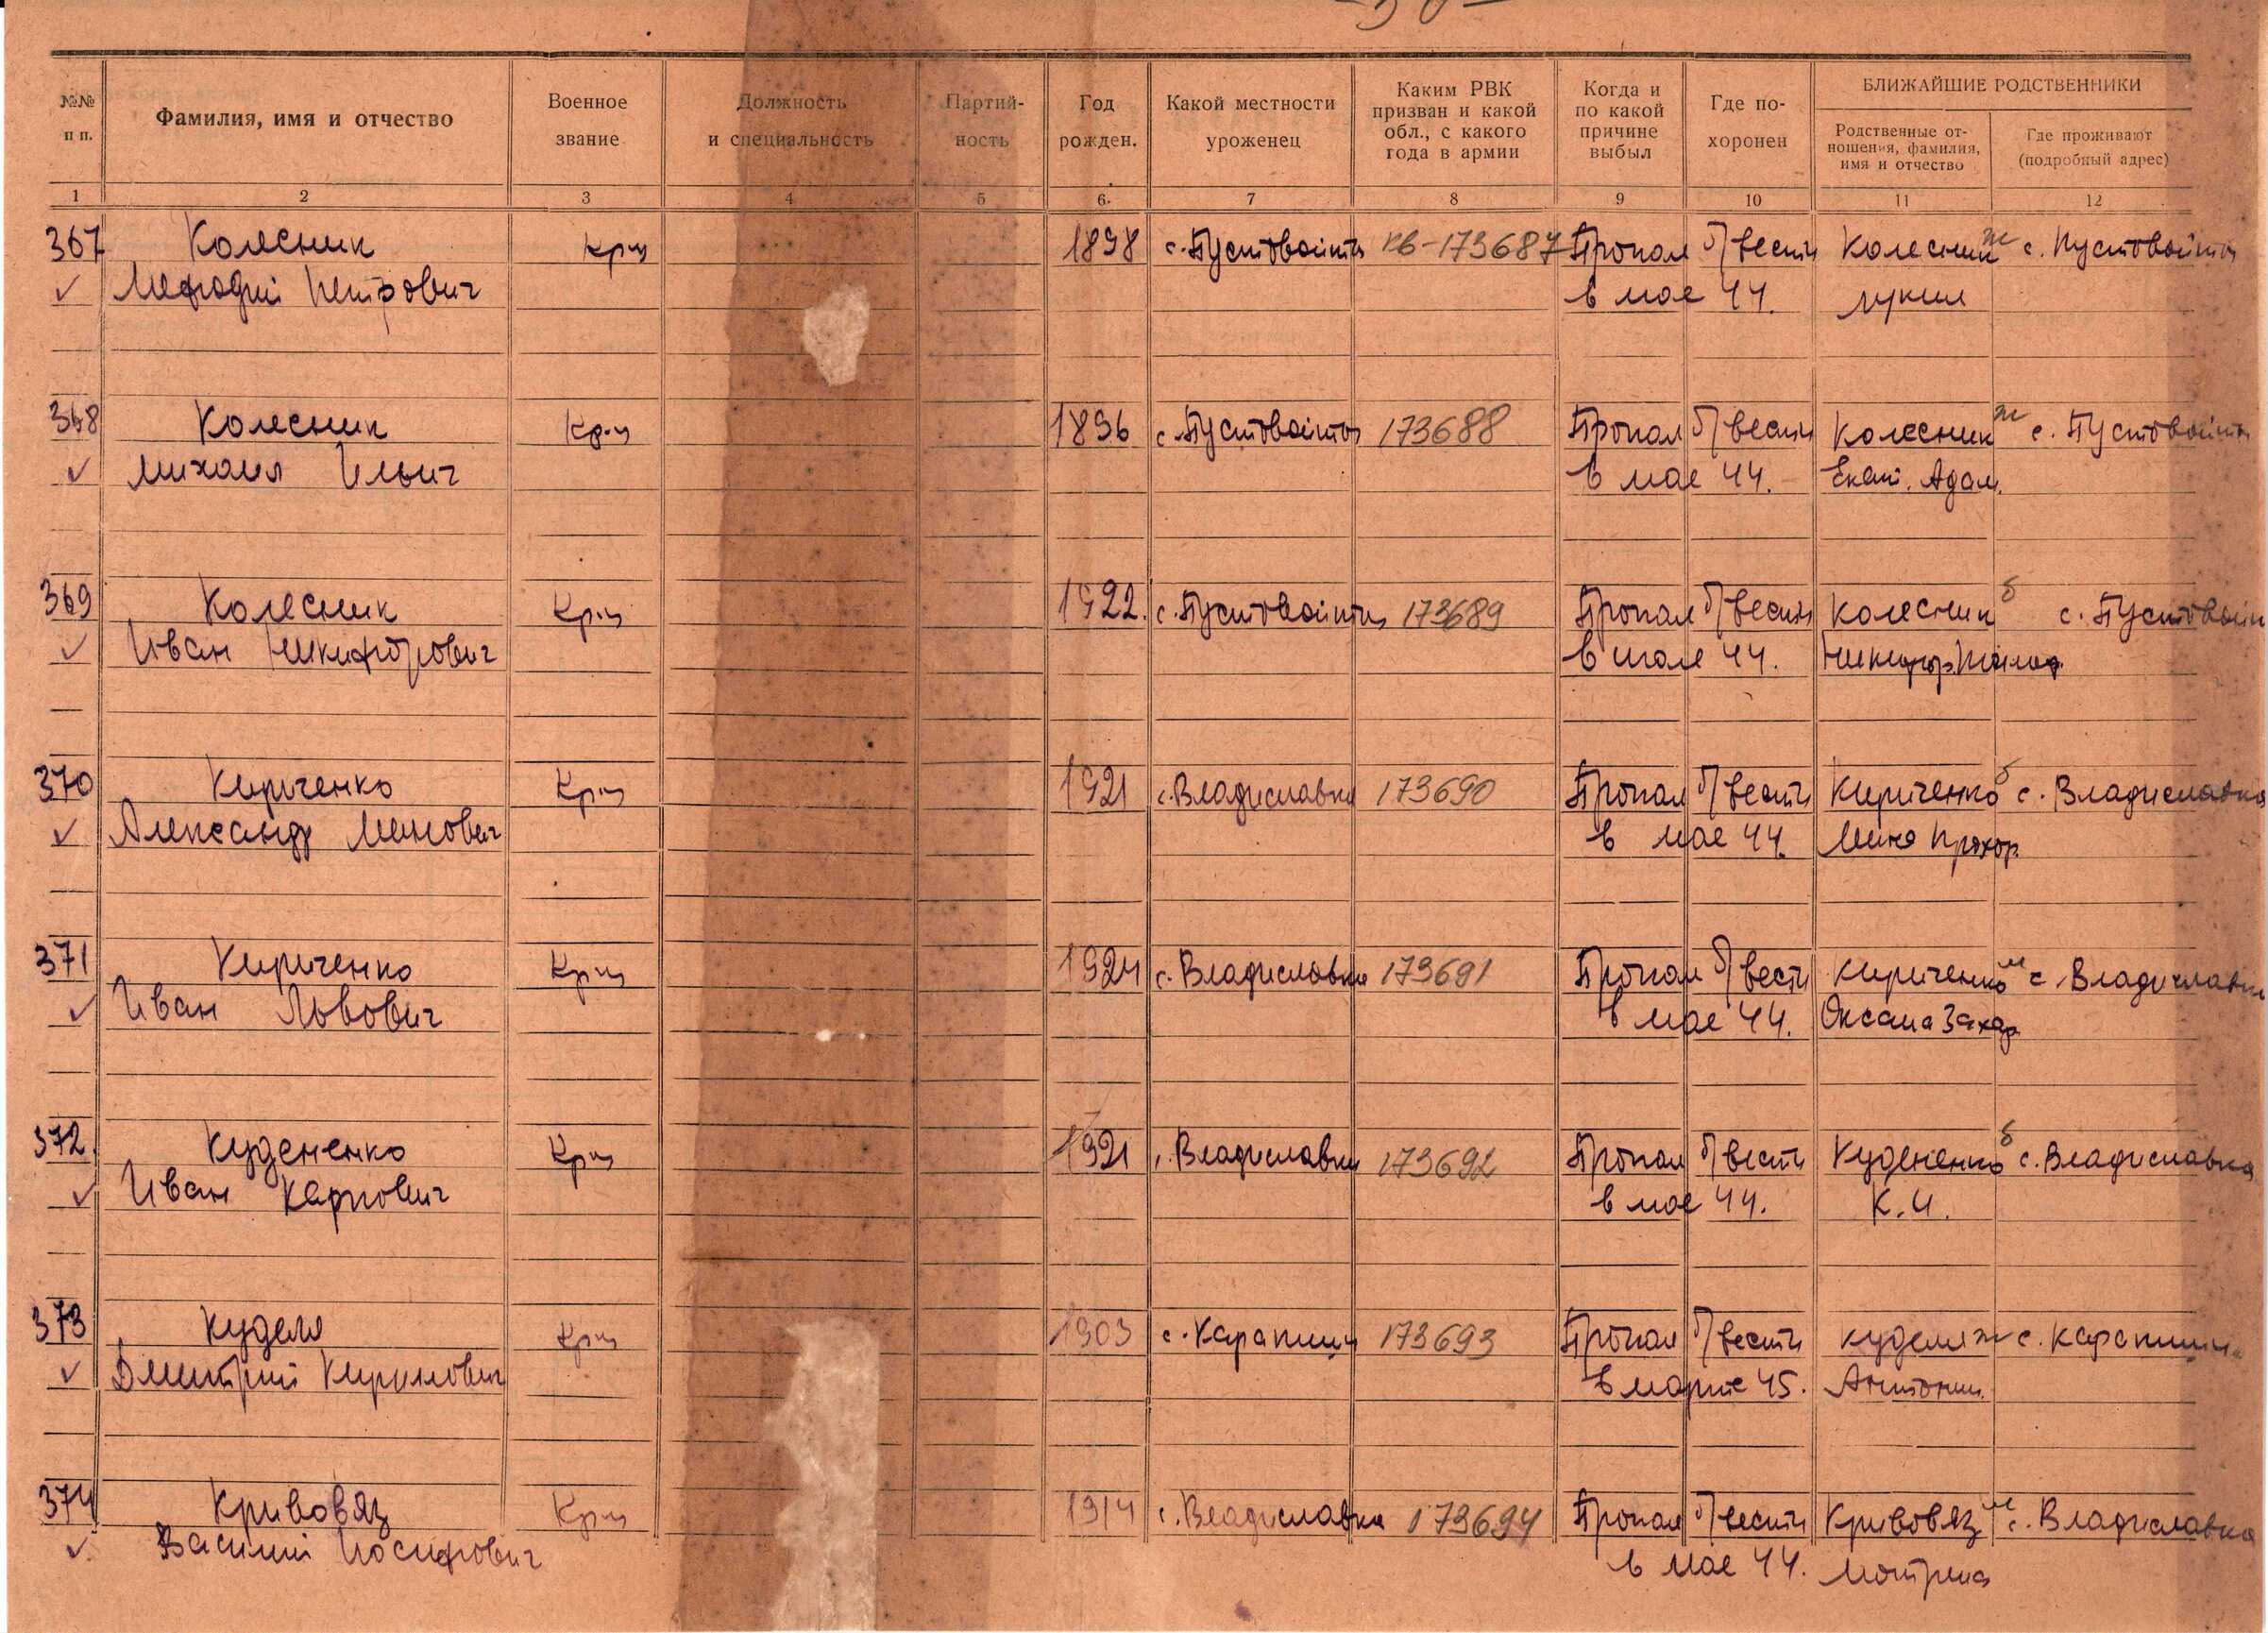 -50-
№№ п п.
Фамилия, имя и отчество
Военное звание
Должность и специальность
Партий-ность
Год рожден.
Какой местности уроженец
Каким РВК призван и какой обл., с какого года в армии
Когда и по какой причине выбыл
Где по-хоронен
БЛИЖАЙШИЕ РОДСТВЕННИКИ
Родственные от-ношения, фамилия, имя и отчество
Где проживают (подробный адрес)
1 2 3 4 5 6. 7 8 9 10 11 12
367 Колесник Кр-ц 1898 с. Пустовойты кв-173687 Пропал б/вести Колесник ж с. Пустовойты
✓ Мефодий Петрович в мае 44.
368 Колесник Кр-ц 1896 с. Пустовойты 173688 Пропал б/вести Колесник ж с. Пустовойты
✓ Михаил Ильич в мае 44. Екат. Адам.
369 Колесник Кр-ц 1922. с. Пустовойты 173689 Пропал б/вести Колесник б с. Пустовойт
✓ Иван Никифорович в 44. Никифор
370 Кириченко Кр-ц 1921 с. Владиславка 173690 Пропал б/вести Кириченко б с. Владиславка
✓ Александр Минович в мае 44. Мина Прохор.
371 Кириченко Кр-ц 1924 с. Владиславка 173691 Пропал б/вести Кириченко м с. Владиславка
✓ Иван Львович в мае 44. Оксана Захар.
372. Кудененко Кр-ц 1921 с. Владиславка 173692 Пропал б/вести Кудененко б с. Владиславка
✓ Иван Карпович в мае 44. К. И.
373 Куделя Кр-ц 1903 с. Карапыши 173693 Пропал б/вести Куделя ж с. Карапыши
✓ Дмитрий Кирилович в марте 45. Антонин.
374 Кривовяз Кр-ц 1914 с. Владиславка 173694 Пропал б/вести Кривовяз м с. Владиславка
✓ Василий Иосифович в мае 44. Мотрена